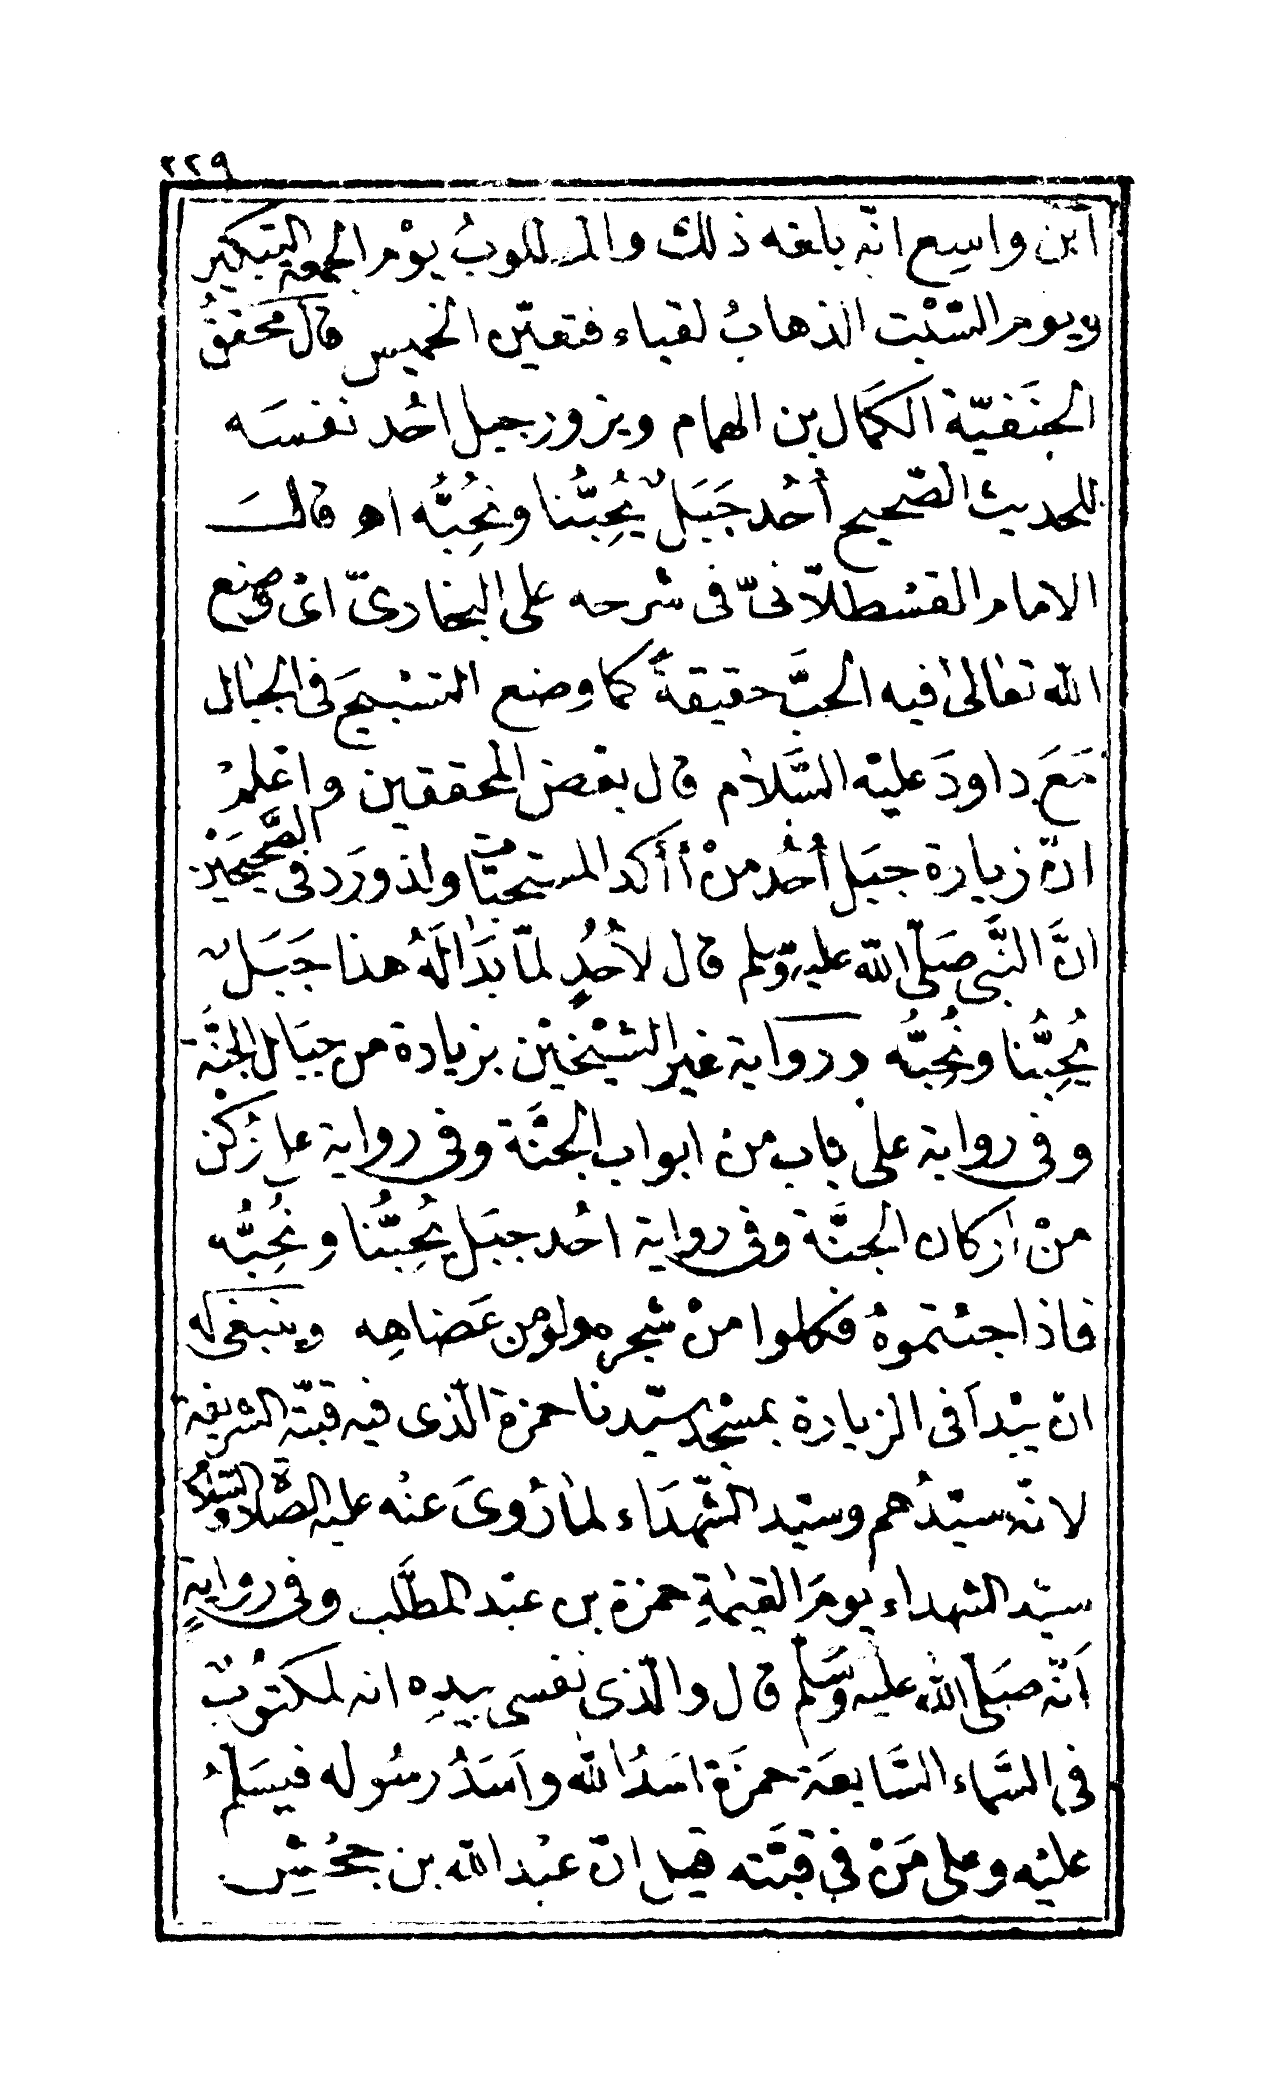 ٢٢٩
ابن واسع انّه بلغه ذلك والمطلوبُ يوْم الجمعة التبكير
ويوم السّبْت الذهابُ لقباء فتعيّن الخميس قال محقّقُ
الحنَفيّة الكمَال بن الهمام ويزور جبل احُد نفسَه
للحديث الصّحيح أُحُد جَبَلٌ يُحِبُّنا ونُحِبُّه اه قالَ
الامام القسْطلّانىّ فى شرْحه على البخارىّ اىْ وضع
الله تعالىٰ فيه الحبَّ حقيقةً كما وضع التسْبيحَ فى الجبال
مَعَ داودَ عليْه السَّلاٰم قال بعْض المحققين واعْلمْ
انّ زيارة جبَل أُحُد منْ أأكد المستحبّات واذ ورَد فى الصَّحيحَيْن
انَّ النَّبى صَلّى الله عليْه وسلم قال لأحُدٍ لمّا بَدَا لَهُ هذا جَبَلٌ
يُحِبُّنا ونُحِبُّه ورواية غيْر الشيْخيْن بزيادة من جبَال الجنَّة
وفى رواية علىٰ باب منْ ابواب الجنَّة وفى رواية على رُكْن
منْ ارْكان الجنَّة وفى رواية احُد جبَل يُحِبُّنا ونُحِبُّه
فاذا جئتموهُ فكلوا منْ شجره ولو من عَضاهِه وينبغى له
انْ يبْدأ فى الزيارة بمسْجد سيّدنا حمزة الّذى فيه قبّته الشريفة
لانّه سيّدُهم وسيّد الشّهدَاء لماٰ رُوىَ عنْه عليه الصّلاة والسّلام
سيّد الشهداء يومَ القيٰمةِ حمزة بن عبْد المطَّلب وفى روايةٍ
اَنّه صَلّى اللّه عليْه وسَلّم قال والّذى نفسى بيدِه انه لمكتوُبٌ
فى السَّماء السَّابعَة حمزَة اسَدُ اللّه واَسَدُ رسُوله فيسَلّمُ
عليْه وعلى مَنْ فى قبَّته قيل انّ عبْد الله بن جحْش